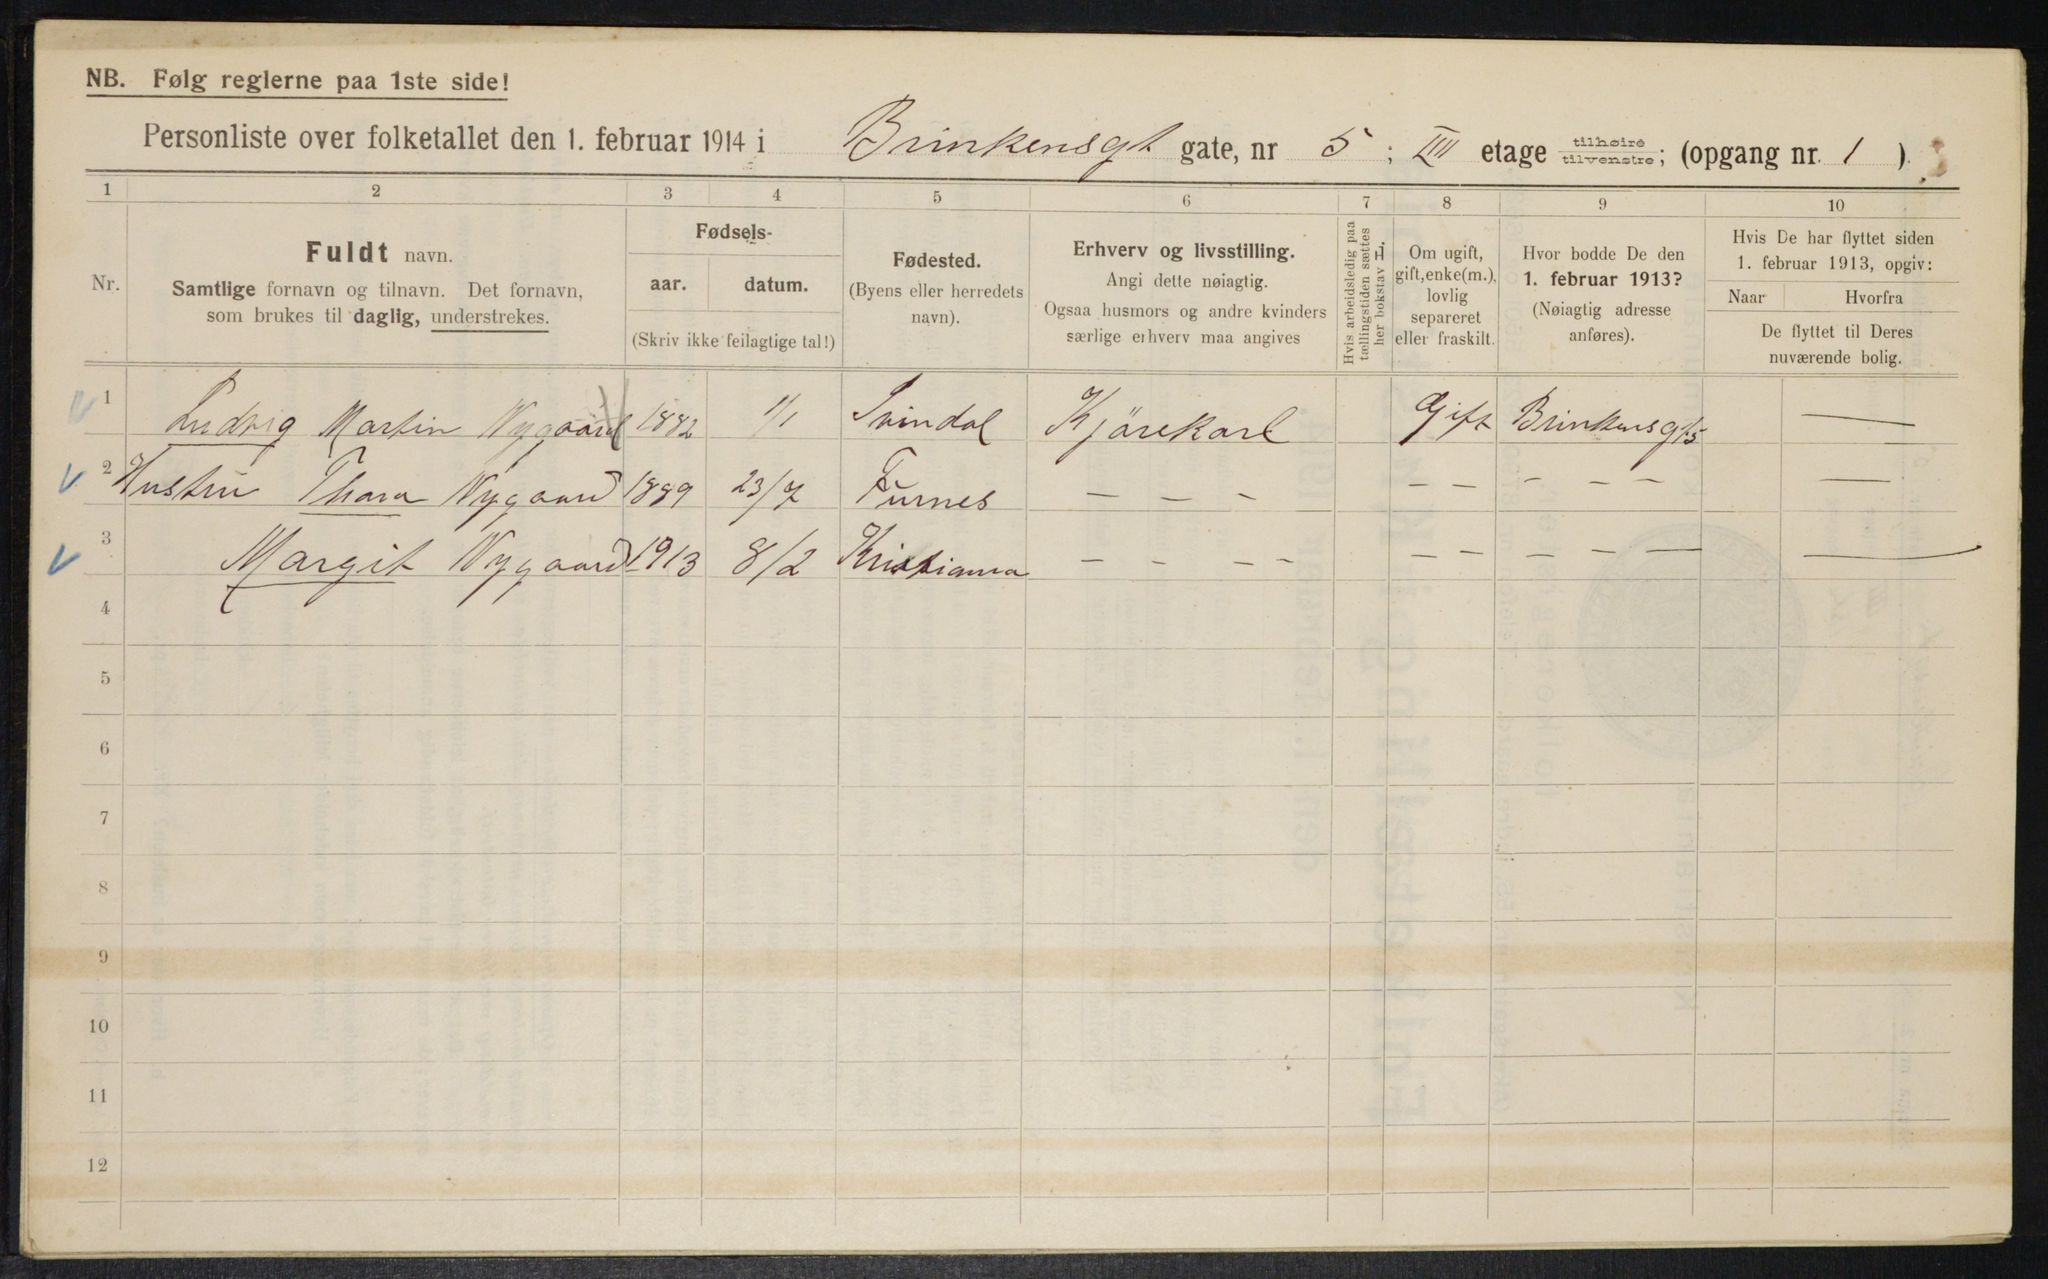 NB. Følg reglerne paa 1ste side!
Personliste over folketallet den 1. februar 1914 i Brinkensgt gate, nr 5; III etage tilhøire tilvenstre; (opgang nr. 1 ).
1 2 3 4 5 6 7 8 9 10
Nr.
Fuldt navn.
Samtlige fornavn og tilnavn. Det fornavn,
som brukes til daglig, understrekes.
Fødsels-
aar. datum.
(Skriv ikke feilagtige tal!)
Fødested.
(Byens eller herredets
navn).
Erhverv og livsstilling.
Angi dette nøiagtig.
Ogsaa husmors og andre kvinders
særlige erhverv maa angives
Hvis arbeidsledig paa
tællingstiden sættes
her bokstav L.
Om ugift,
gift, enke(m.),
lovlig
separeret
eller fraskilt.
Hvor bodde De den
1. februar 1913?
(Nøiagtig adresse
anføres).
Hvis De har flyttet siden
1. februar 1913, opgiv:
Naar Hvorfra
De flyttet til Deres
nuværende bolig.
1 Ludvig Martin Nygaard 1882 1/1 Svindal Kjörekarl Gift Brinkensgt 5 —
2 Hustru Thora Nygaard 1889 23/7 Furnes — — — — — — — — —
3 Margit Nygaard 1913 8/2 Kristiania — — — — — — — — — — —
4
5
6
7
8
9
10
11
12